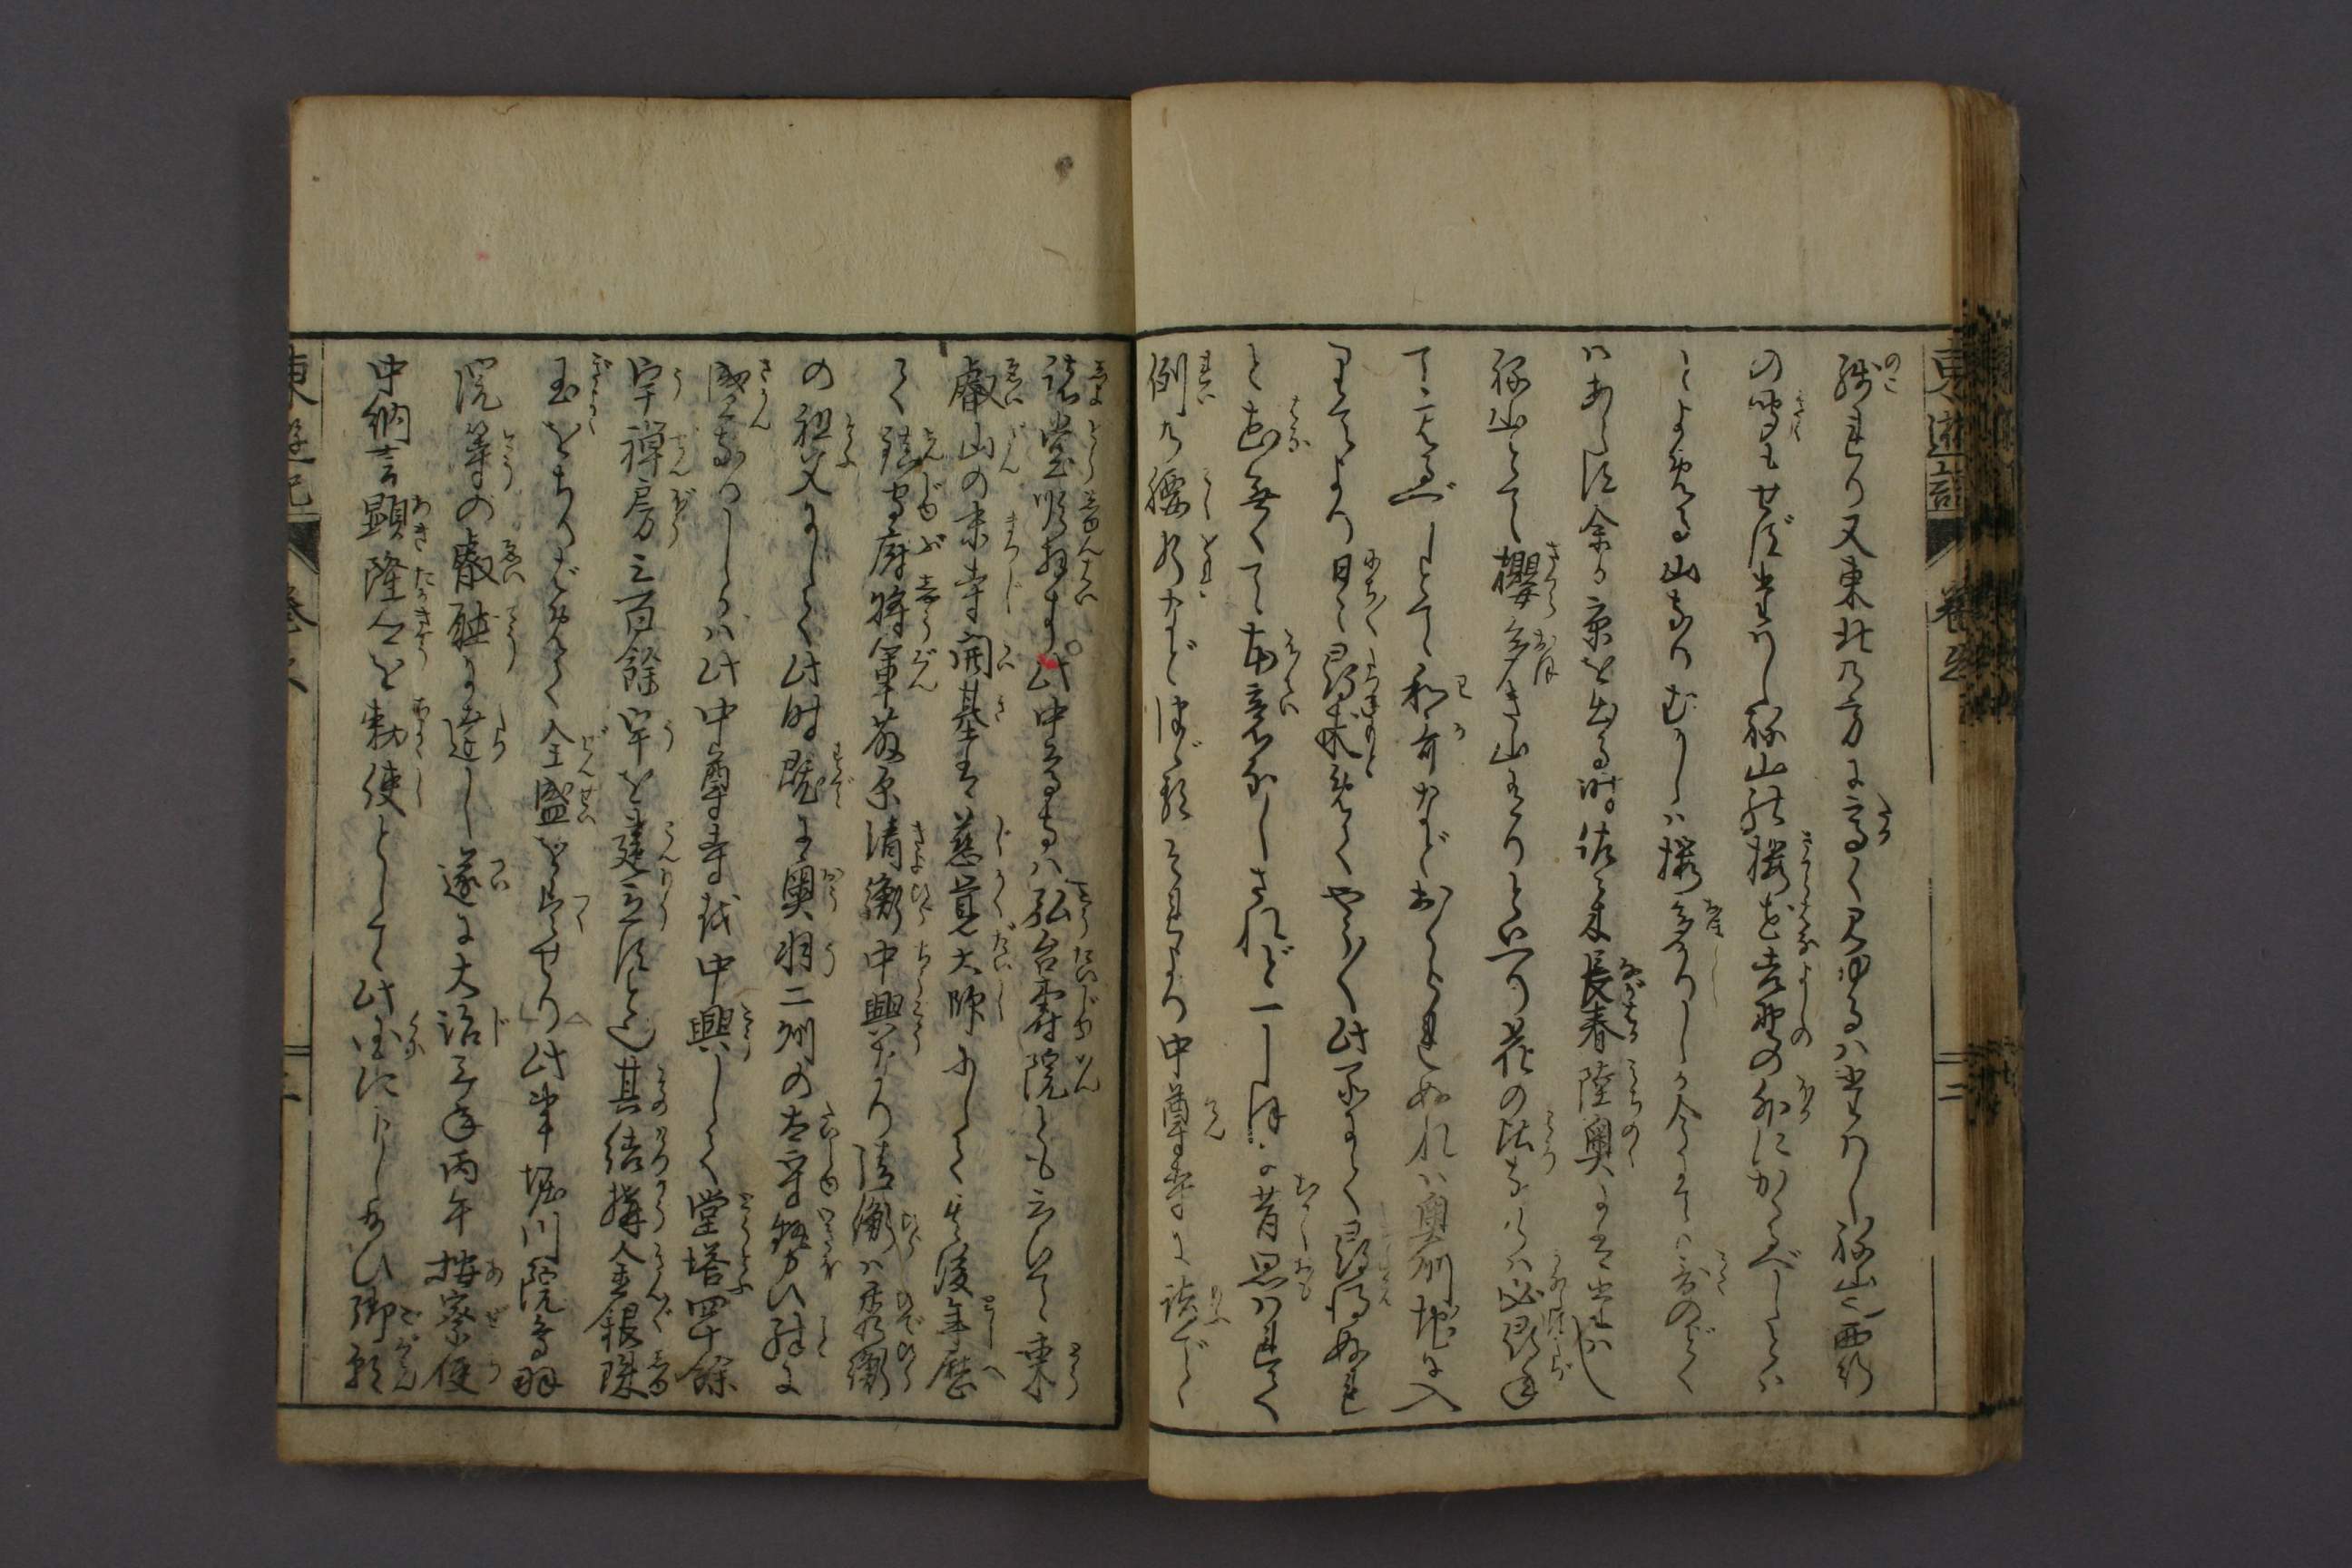 東遊記
巻之
二
残れり又東北の方に高く見ゆるハたハしね山也西行
の聞もせずたハしね山桜花吉野の外にかゝるべしとハ
とよめる山なりむかしハ桜多かりしが今ハ
ハあらず余が京を出る時佐々木長春陸奥にはたハし
ね山とて桜多き山有りといへり花の比ならハ必尋
て見るべしとて和哥などおくられぬれハ奥州地に入
りてより日々尋求めてやう〳〵此所にて尋得ぬれ
ど花無くて本意なしされど一しほに昔思ハれて
例の腰折などつゞりそれより中尊寺に詣でゝ
諸堂順拝す此中尊寺ハ弘台寿院とも云いて東
叡山の末寺開基は慈覚大師にして其後年歴
て鎮守府将軍藤原清衡中興なり清衡ハ秀衡
の祖父にして此時既に奥羽二州の太守勢ひ殊に
盛なりしかハ此中尊寺を中興して堂塔四十余
宇禅房三百余宇を建立すと也其結構金銀珠
玉をちりばめて全盛を尽せり此事堀川院鳥羽
院等の叡聴に達し遂に大治三年丙午按察使
中納言顕隆公を勅使として此国に下し給ひ御願
東遊記